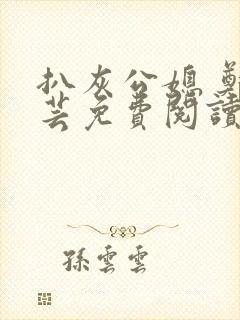 扒灰公媳 鄭
芸免費閱讀
孫雲雲